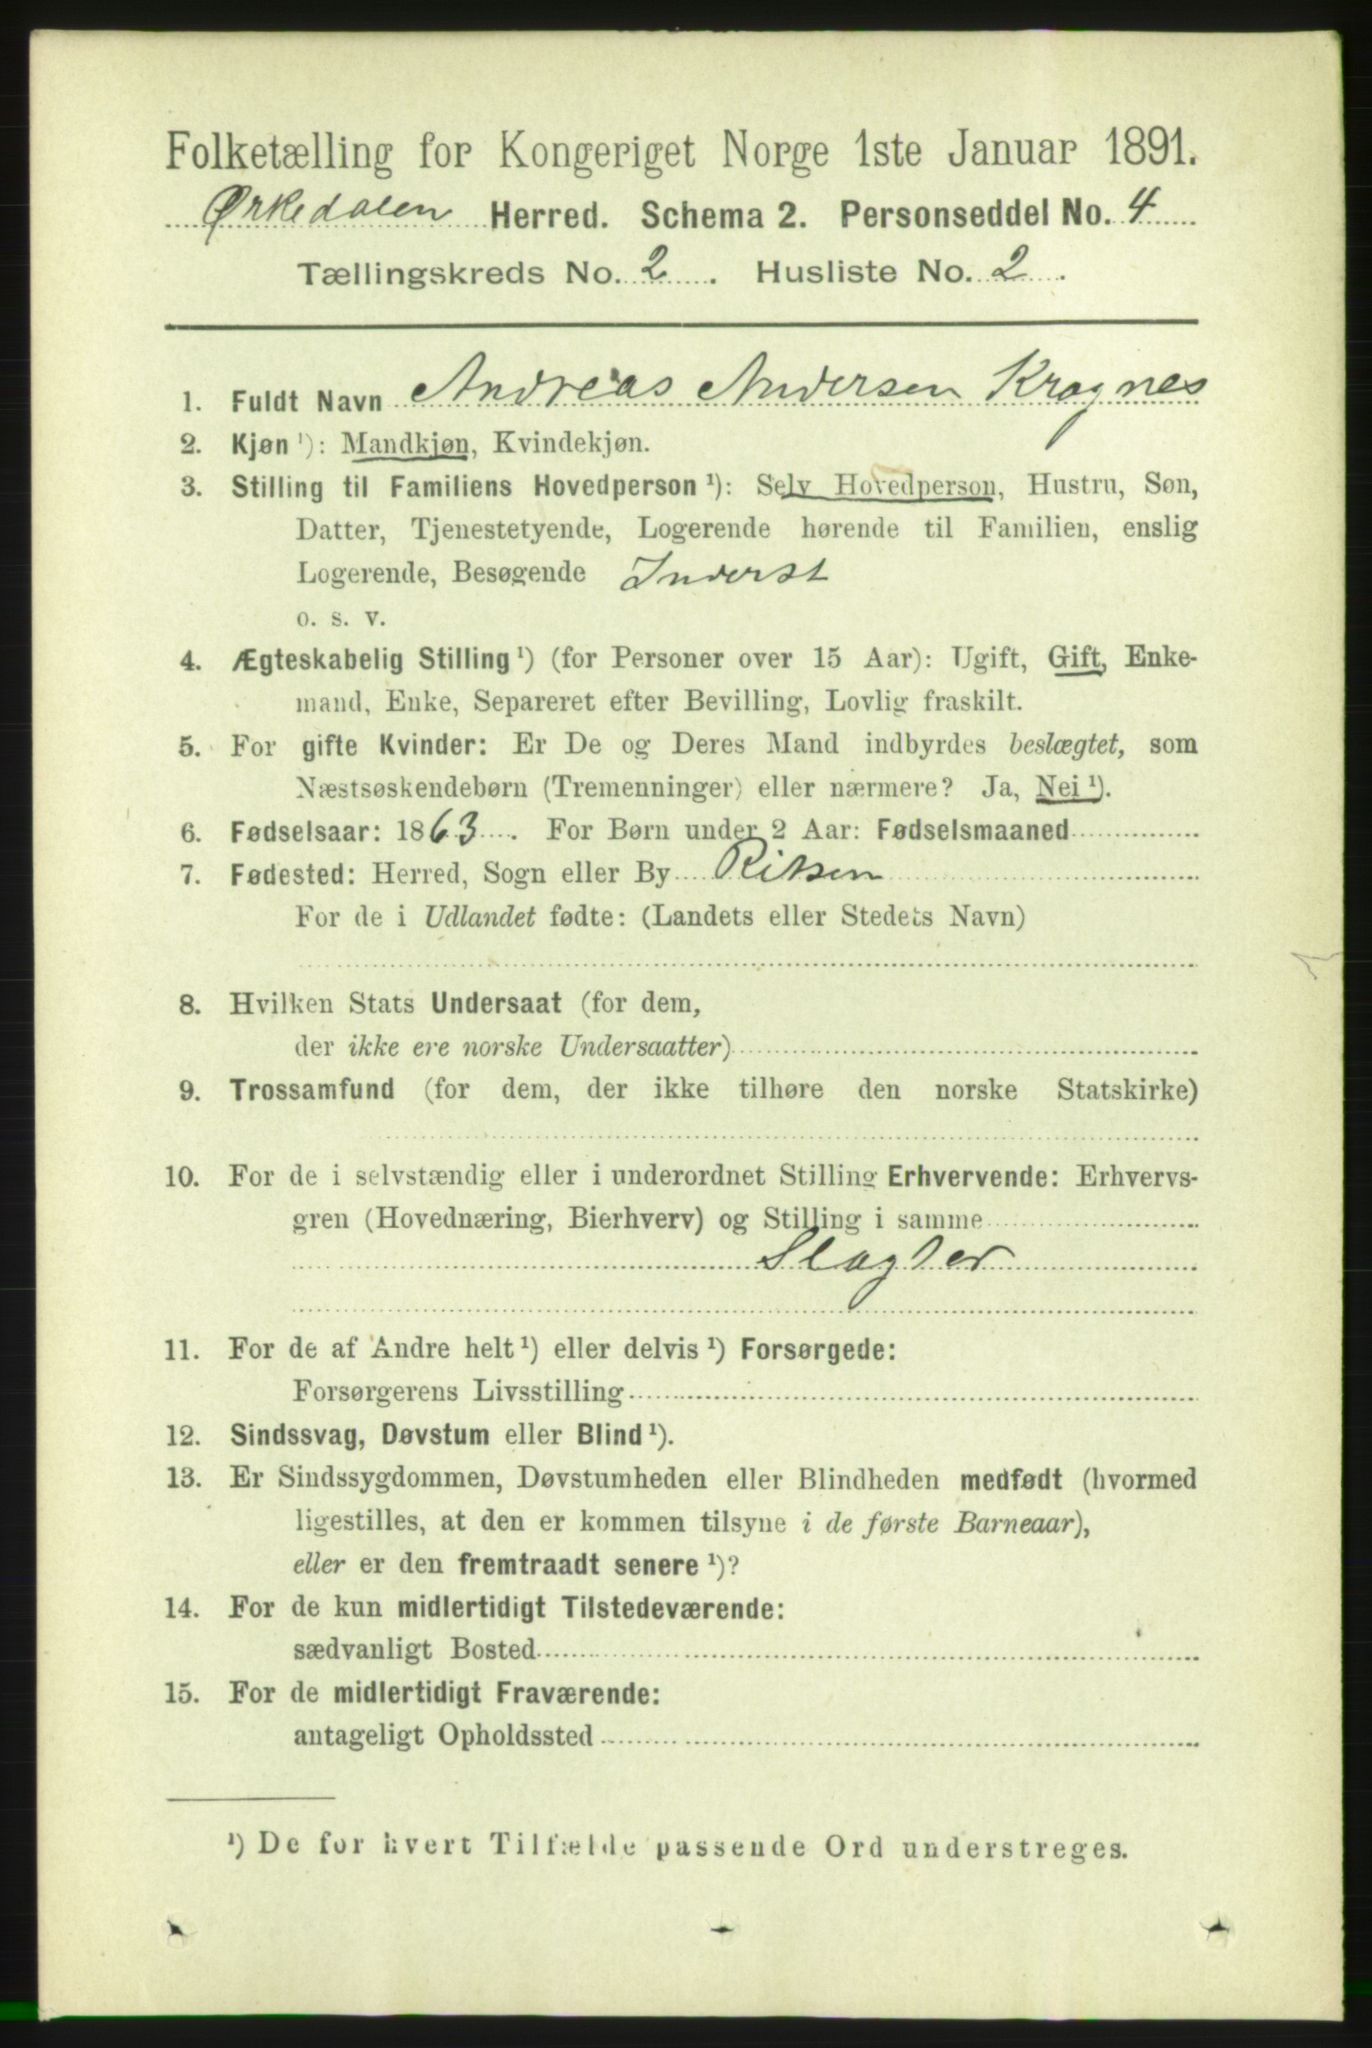 Folketælling for Kongeriget Norge 1ste Januar 1891.
Ørkedalen Herred. Schema 2. Personseddel No. 4
Tællingskreds No. 2. Husliste No. 2.
1. Fuldt Navn Andreas Andersen Krognes
2. Kjøn ¹): Mandkjøn, Kvindekjøn.
3. Stilling til Familiens Hovedperson ¹): Selv Hovedperson, Hustru, Søn,
Datter, Tjenestetyende, Logerende hørende til Familien, enslig
Logerende, Besøgende Inderst
o. s. v.
4. Ægteskabelig Stilling ¹) (for Personer over 15 Aar): Ugift, Gift, Enke-
mand, Enke, Separeret efter Bevilling, Lovlig fraskilt.
5. For gifte Kvinder: Er De og Deres Mand indbyrdes beslægtet, som
Næstsøskendebørn (Tremenninger) eller nærmere? Ja, Nei ¹).
6. Fødselsaar: 1863. For Børn under 2 Aar: Fødselsmaaned
7. Fødested: Herred, Sogn eller By Ritsen
For de i Udlandet fødte: (Landets eller Stedets Navn)
8. Hvilken Stats Undersaat (for dem,
der ikke ere norske Undersaatter)
9. Trossamfund (for dem, der ikke tilhøre den norske Statskirke)
10. For de i selvstændig eller i underordnet Stilling Erhvervende: Erhvervs-
gren (Hovednæring, Bierhverv) og Stilling i samme
Slagter
11. For de af Andre helt ¹) eller delvis ¹) Forsørgede:
Forsørgerens Livsstilling
12. Sindssvag, Døvstum eller Blind ¹).
13. Er Sindssygdommen, Døvstumheden eller Blindheden medfødt (hvormed
ligestilles, at den er kommen tilsyne i de første Barneaar),
eller er den fremtraadt senere ¹)?
14. For de kun midlertidigt Tilstedeværende:
sædvanligt Bosted
15. For de midlertidigt Fraværende:
antageligt Opholdssted
¹) De for hvert Tilfælde passende Ord understreges.